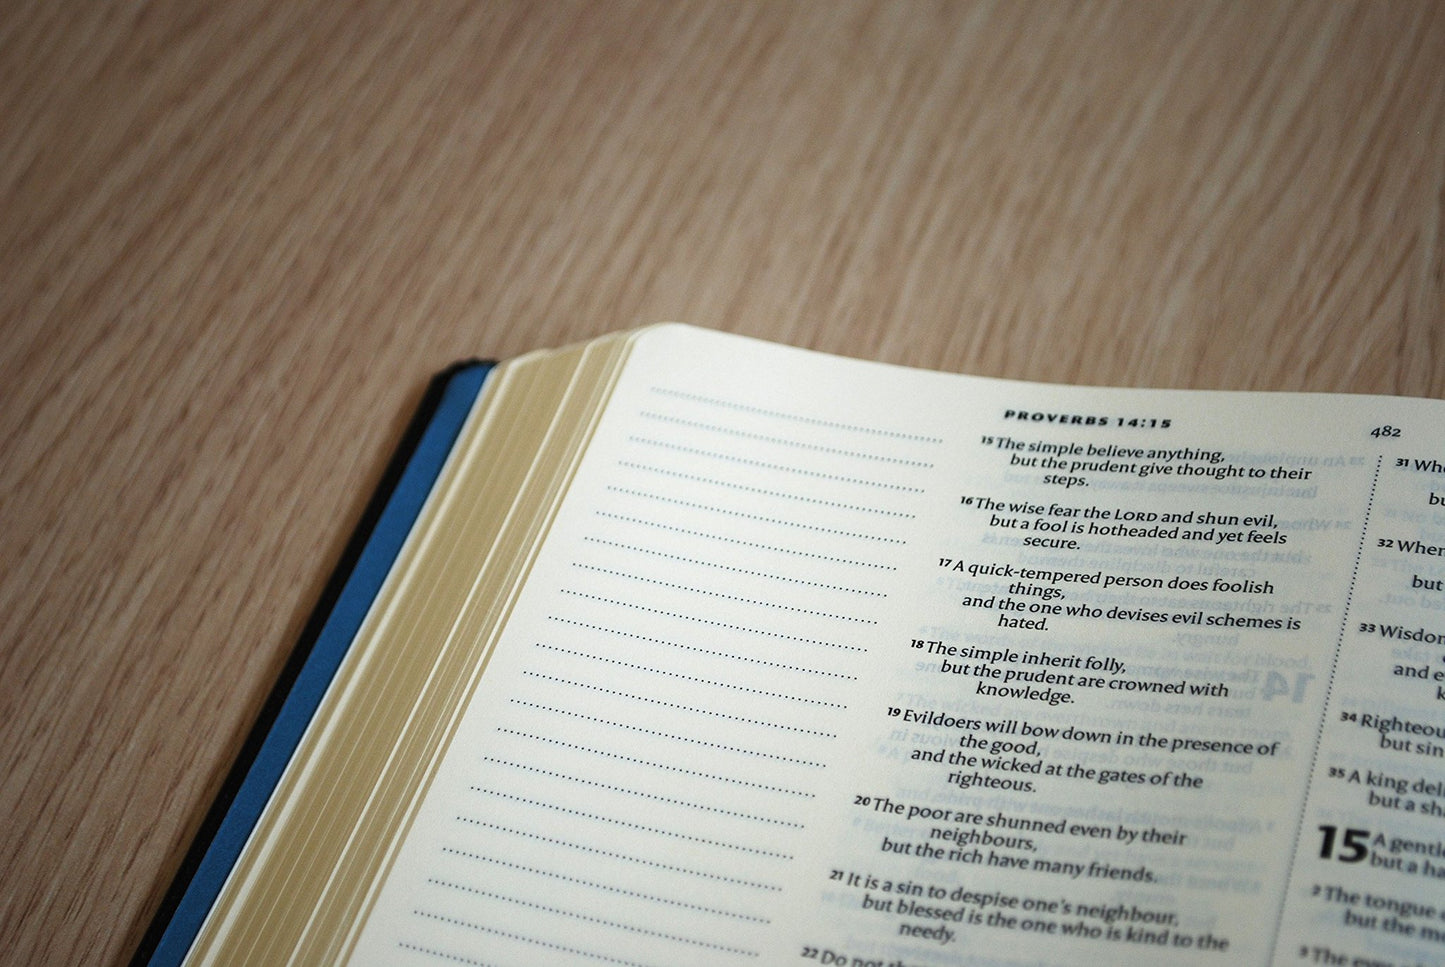 PROVERBS 14:15
482
15 The simple believe anything,
but the prudent give thought to their
steps.
16 The wise fear the LORD and shun evil,
but a fool is hotheaded and yet feels
secure.
17 A quick-tempered person does foolish
things,
and the one who devises evil schemes is
hated.
18 The simple inherit folly,
but the prudent are crowned with
knowledge.
19 Evildoers will bow down in the presence of
the good,
and the wicked at the gates of the
righteous.
20 The poor are shunned even by their
neighbours,
but the rich have many friends.
21 It is a sin to despise one's neighbour,
but blessed is the one who is kind to the
needy.
22 Do not
31
32 When
but
33
and
34
but sin
35 A king
but a
15 A
but a
2 The tongue
but the
3 The